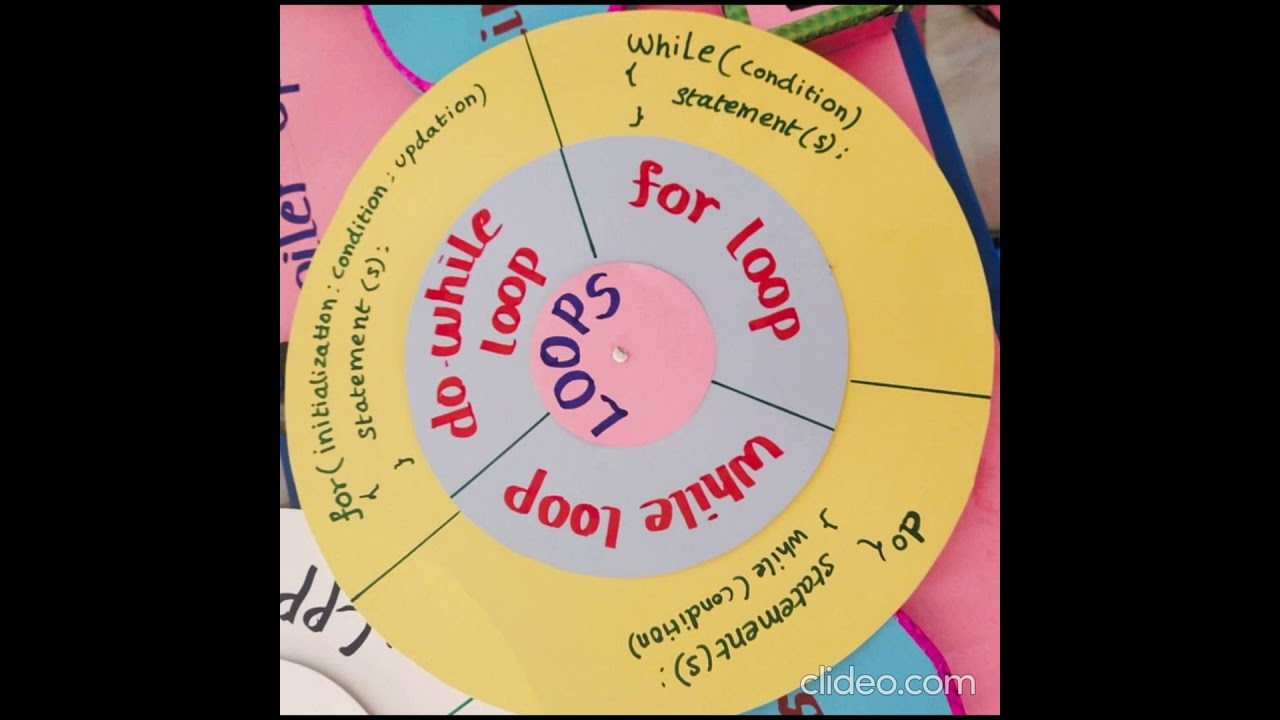 while(condition)
{
statement(s);
}
for loop
for(initialization:condition:updation)
{
statement(s);
}
do-while
loop
LOOPS
while loop
do{
statement(s);
} while(condition)
CPP
clideo.com